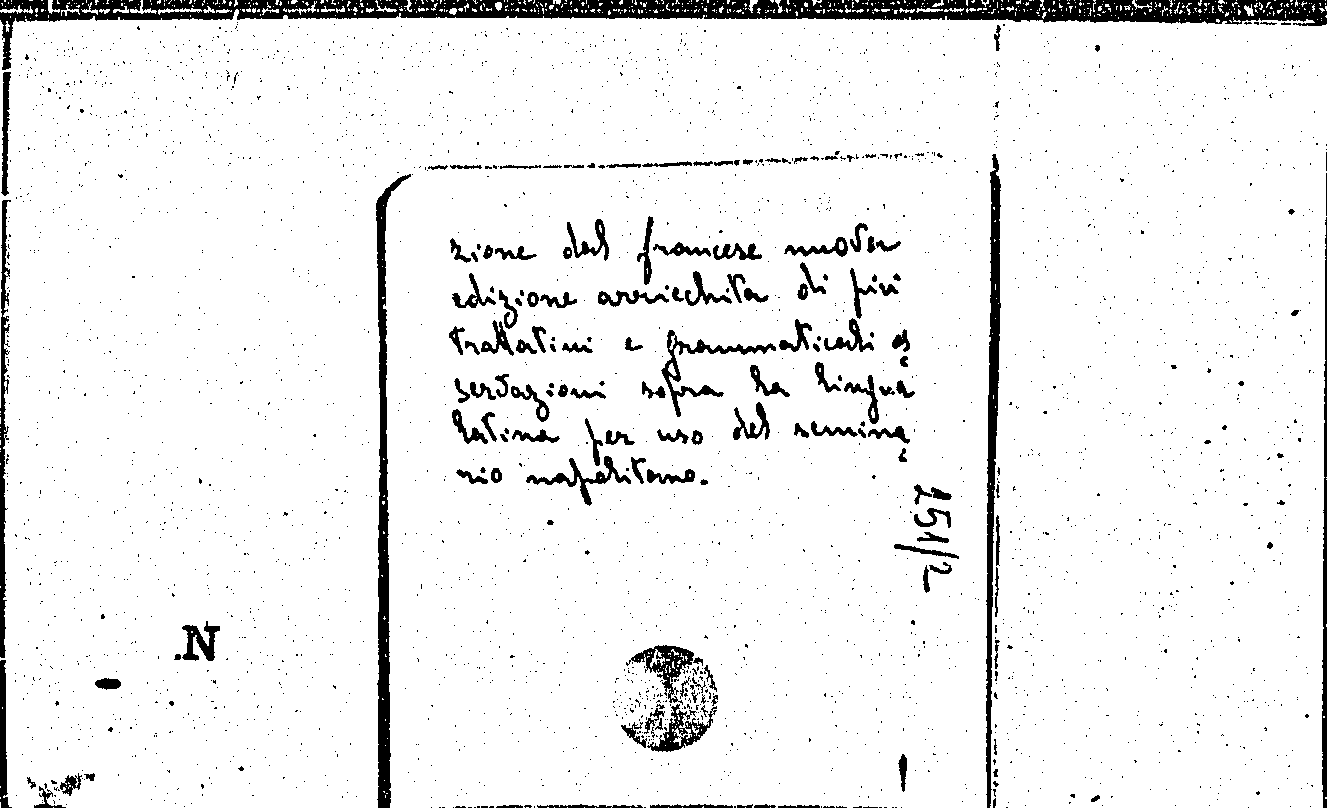 zione dal francese nuova
edizione arricchita di più
trattatini e grammaticali os
servazioni sopra la lingua
latina per uso del semina
rio napolitano.
251/2
.N